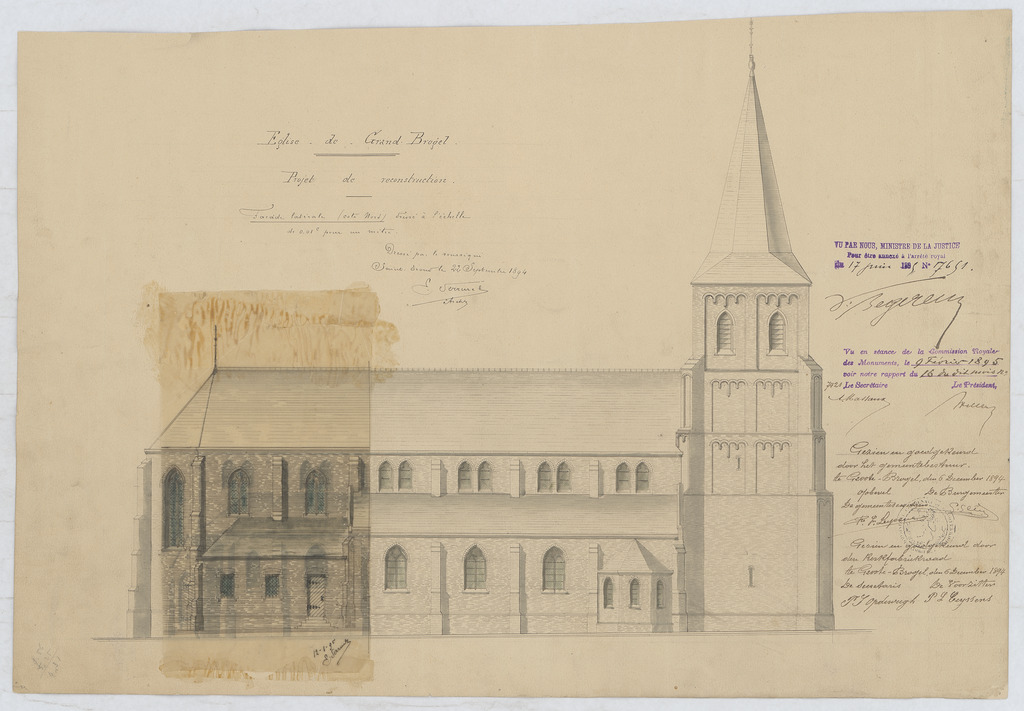 Eglise de Grand-Brogel.
Projet de reconstruction.
Façade latérale (coté Nord) à l'échelle
pour un mètre
Dressé par le soussigné
22 Septembre 1894
VU PAR NOUS, MINISTRE DE LA JUSTICE
Pour être annexé à l'arrêté royal
du 17 juin 1895 N° 17651.
V. Begerem
Vu en séance de la Commission Royale
des Monuments, le 9 Février 1895
voir notre rapport du 16 du dit mois
Le Secrétaire Le Président,
A. Massaux
Gezien en goedgekeurd
door het gemeentebestuur.
te Groote-Brogel, den 6 December 1894
De Burgemeester
De gemeentesecretaris
Gezien en goedgekeurd door
den Kerkfabriekraad
te Groote-Brogel, den 6 December 1894
De secretaris De Voorzitter